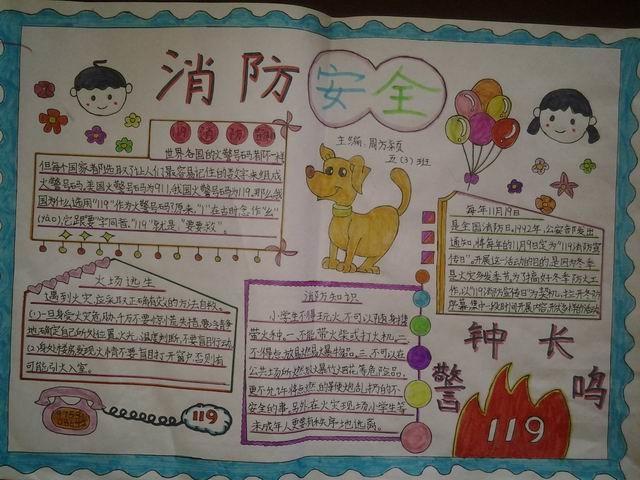 消防安全
主编：周方
五(3)班
119消防
世界各国的火警号码都不一样
但每个国家都选取了让人们最容易记住的数字来组成
火警号码,美国火警号码为911,我国火警号码为119,那么我
国为什么选用"119"作为火警号码?原来,"1"在古时念作"幺"
(yāo)它跟"要"字同音,"119"就是"要要救"。
火场逃生
遇到火灾,应采取正确有效的方法自救。
(1)一旦身受火灾危胁,千万不要惊慌失措,要冷静
地确定自己所处位置,火光、温度判断,不要盲目行动
(2)身处楼房发现火情不要盲目打开窗户,否则有
可能引火入室。
119
消防知识
小学生不得玩火,不可以随身携
带火种。一.不能带火柴或打火机。二.
不得
公共场所燃放火爆竹烟花等危险品,
安全的事。另外在火灾现场小学生等
未成年人更要有秩序地远离。
每年11月9日
是全国消防日。1992年,公安部发出
通知,将每年的11月9日定为"119消防宣
传日"。开展这一活动的目的是因为冬季
是火灾多发季节,为了搞好冬季防火工
作,以"119消防宣传日"为契机,
警钟长鸣
119